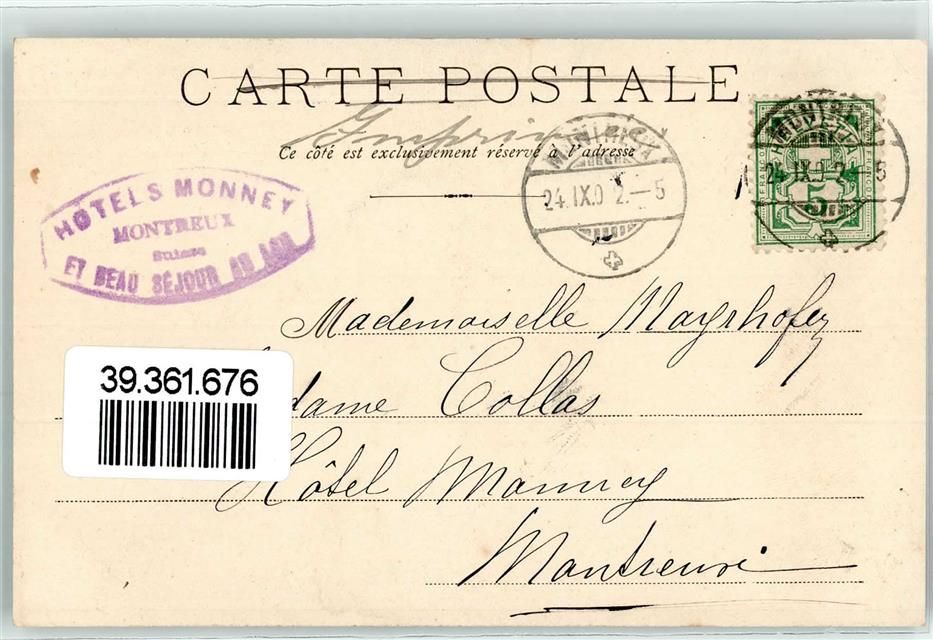 CARTE POSTALE
Imprimé
Ce côté est exclusivement réservé à l'adresse
24.IX.02.-5
5
24.IX.02.-5
HÔTELS MONNEY
MONTREUX
Suisse
ET BEAU SÉJOUR AU LAC
Mademoiselle Mayrhofer
39.361.676
dame Collas
Hôtel Monney
Montreux